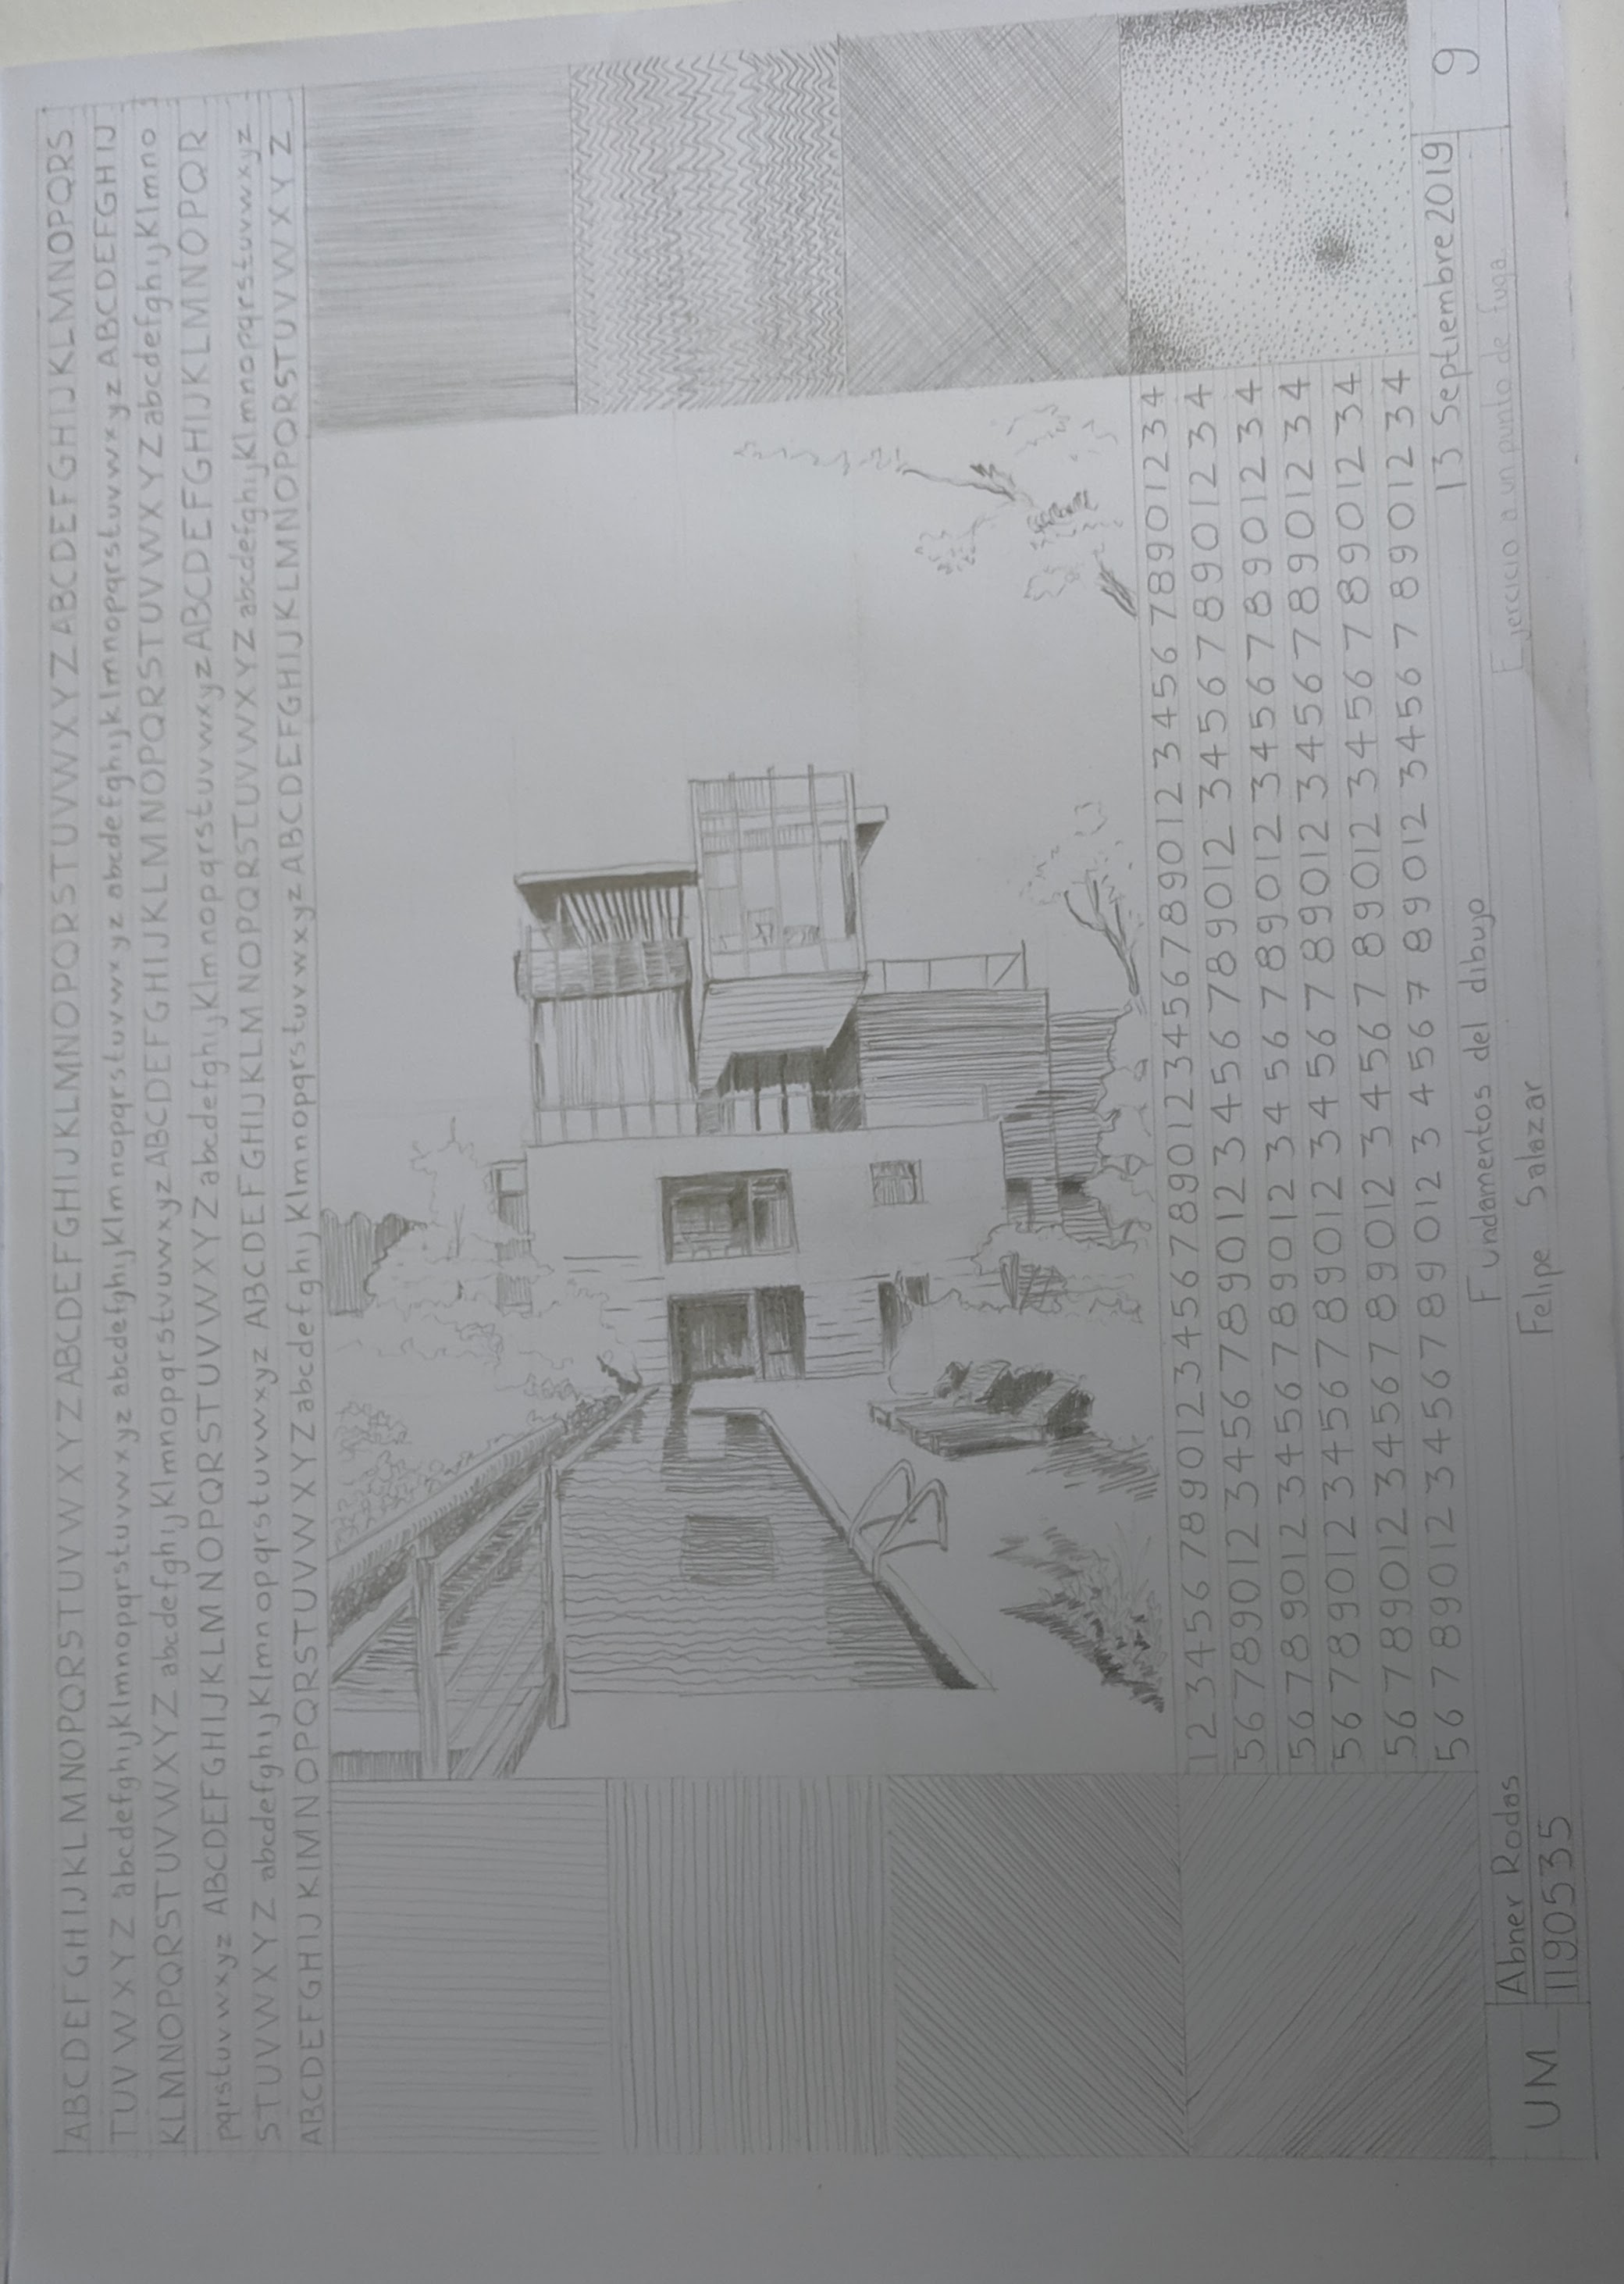 ABCDEFGHIJKLMNOPQRSTUVWXYZ ABCDEFGHIJKLMNOPQRSTUVWXYZ ABCDEFGHIJKLMNOPQRS
TUVWXYZ abcdefghijklmnopqrstuvwxyz abcdefghijklmnopqrstuvwxyz abcdefghijklmnopqrstuvwxyz ABCDEFGHIJ
KLMNOPQRSTUVWXYZ abcdefghijklmnopqrstuvwxyz ABCDEFGHIJKLMNOPQRSTUVWXYZ abcdefghijklmno
pqrstuvwxyz ABCDEFGHIJKLMNOPQRSTUVWXYZ abcdefghijklmnopqrstuvwxyz ABCDEFGHIJKLMNOPQR
STUVWXYZ abcdefghijklmnopqrstuvwxyz ABCDEFGHIJKLMNOPQRSTUVWXYZ abcdefghijklmnopqrstuvwxyz
ABCDEFGHIJKLMNOPQRSTUVWXYZ abcdefghijklmnopqrstuvwxyz ABCDEFGHIJKLMNOPQRSTUVWXYZ
12345678901234567890123456789012345678901234
5678901234567890123456789012345678901234
5678901234567890123456789012345678901234
5678901234567890123456789012345678901234
5678901234567890123456789012345678901234
5678901234567890123456789012345678901234
UM
Abner Rodas
1190535
Fundamentos del dibujo
Felipe Salazar
13 Septiembre 2019
Ejercicio a un punto de fuga.
9